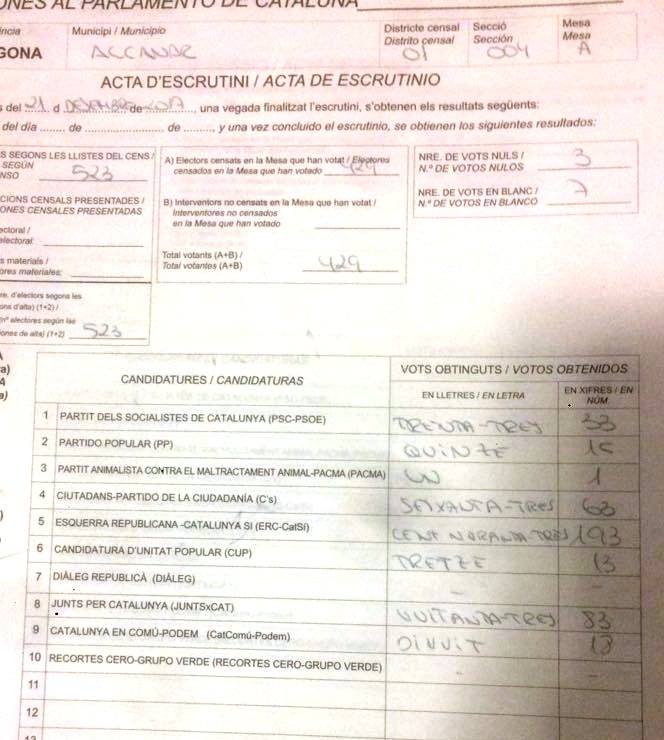 ONES AL PARLAMENTO DE CATALUÑA
íncia
GONA
Municipi / Municipio
ALCANAR
Districte censal
Distrito censal
01
Secció
Sección
004
Mesa
Mesa
A
ACTA D'ESCRUTINI / ACTA DE ESCRUTINIO
s del 21 d DESEMBRE de 2017, una vegada finalitzat l'escrutini, s'obtenen els resultats següents:
del día ........ de ........................ de ........, y una vez concluido el escrutinio, se obtienen los siguientes resultados:
S SEGONS LES LLISTES DEL CENS /
SEGÚN
NSO 523
CIONS CENSALS PRESENTADES /
ONES CENSALES PRESENTADAS
ectoral /
electoral:
s materials /
ores materiales:
re. d'electors segons les
ons d'alta) (1+2) /
(nº electores según las
iones de alta) (1+2) 523
A) Electors censats en la Mesa que han votat / Electores
censados en la Mesa que han votado 429
B) Interventors no censats en la Mesa que han votat /
Interventores no censados
en la Mesa que han votado
Total votants (A+B) /
Total votantes (A+B) 429
NRE. DE VOTS NULS /
N.º DE VOTOS NULOS 3
NRE. DE VOTS EN BLANC /
N.º DE VOTOS EN BLANCO 7
A
a)
A
a)
CANDIDATURES / CANDIDATURAS
VOTS OBTINGUTS / VOTOS OBTENIDOS
EN LLETRES / EN LETRA
EN XIFRES / EN
NÚM
1 PARTIT DELS SOCIALISTES DE CATALUNYA (PSC-PSOE) TRENTA-TRES 33
2 PARTIDO POPULAR (PP) QUINZE 15
3 PARTIT ANIMALISTA CONTRA EL MALTRACTAMENT ANIMAL-PACMA (PACMA) UN 1
4 CIUTADANS-PARTIDO DE LA CIUDADANÍA (C's) SEIXANTA-TRES 63
5 ESQUERRA REPUBLICANA -CATALUNYA SÍ (ERC-CatSí) CENT NORANTA-TRES 193
6 CANDIDATURA D'UNITAT POPULAR (CUP) TRETZE 13
7 DIÀLEG REPUBLICÀ (DIÀLEG) - -
8 JUNTS PER CATALUNYA (JUNTSxCAT) VUITANTA-TRES 83
9 CATALUNYA EN COMÚ-PODEM (CatComú-Podem) DIVUIT 18
10 RECORTES CERO-GRUPO VERDE (RECORTES CERO-GRUPO VERDE) - -
11
12
13